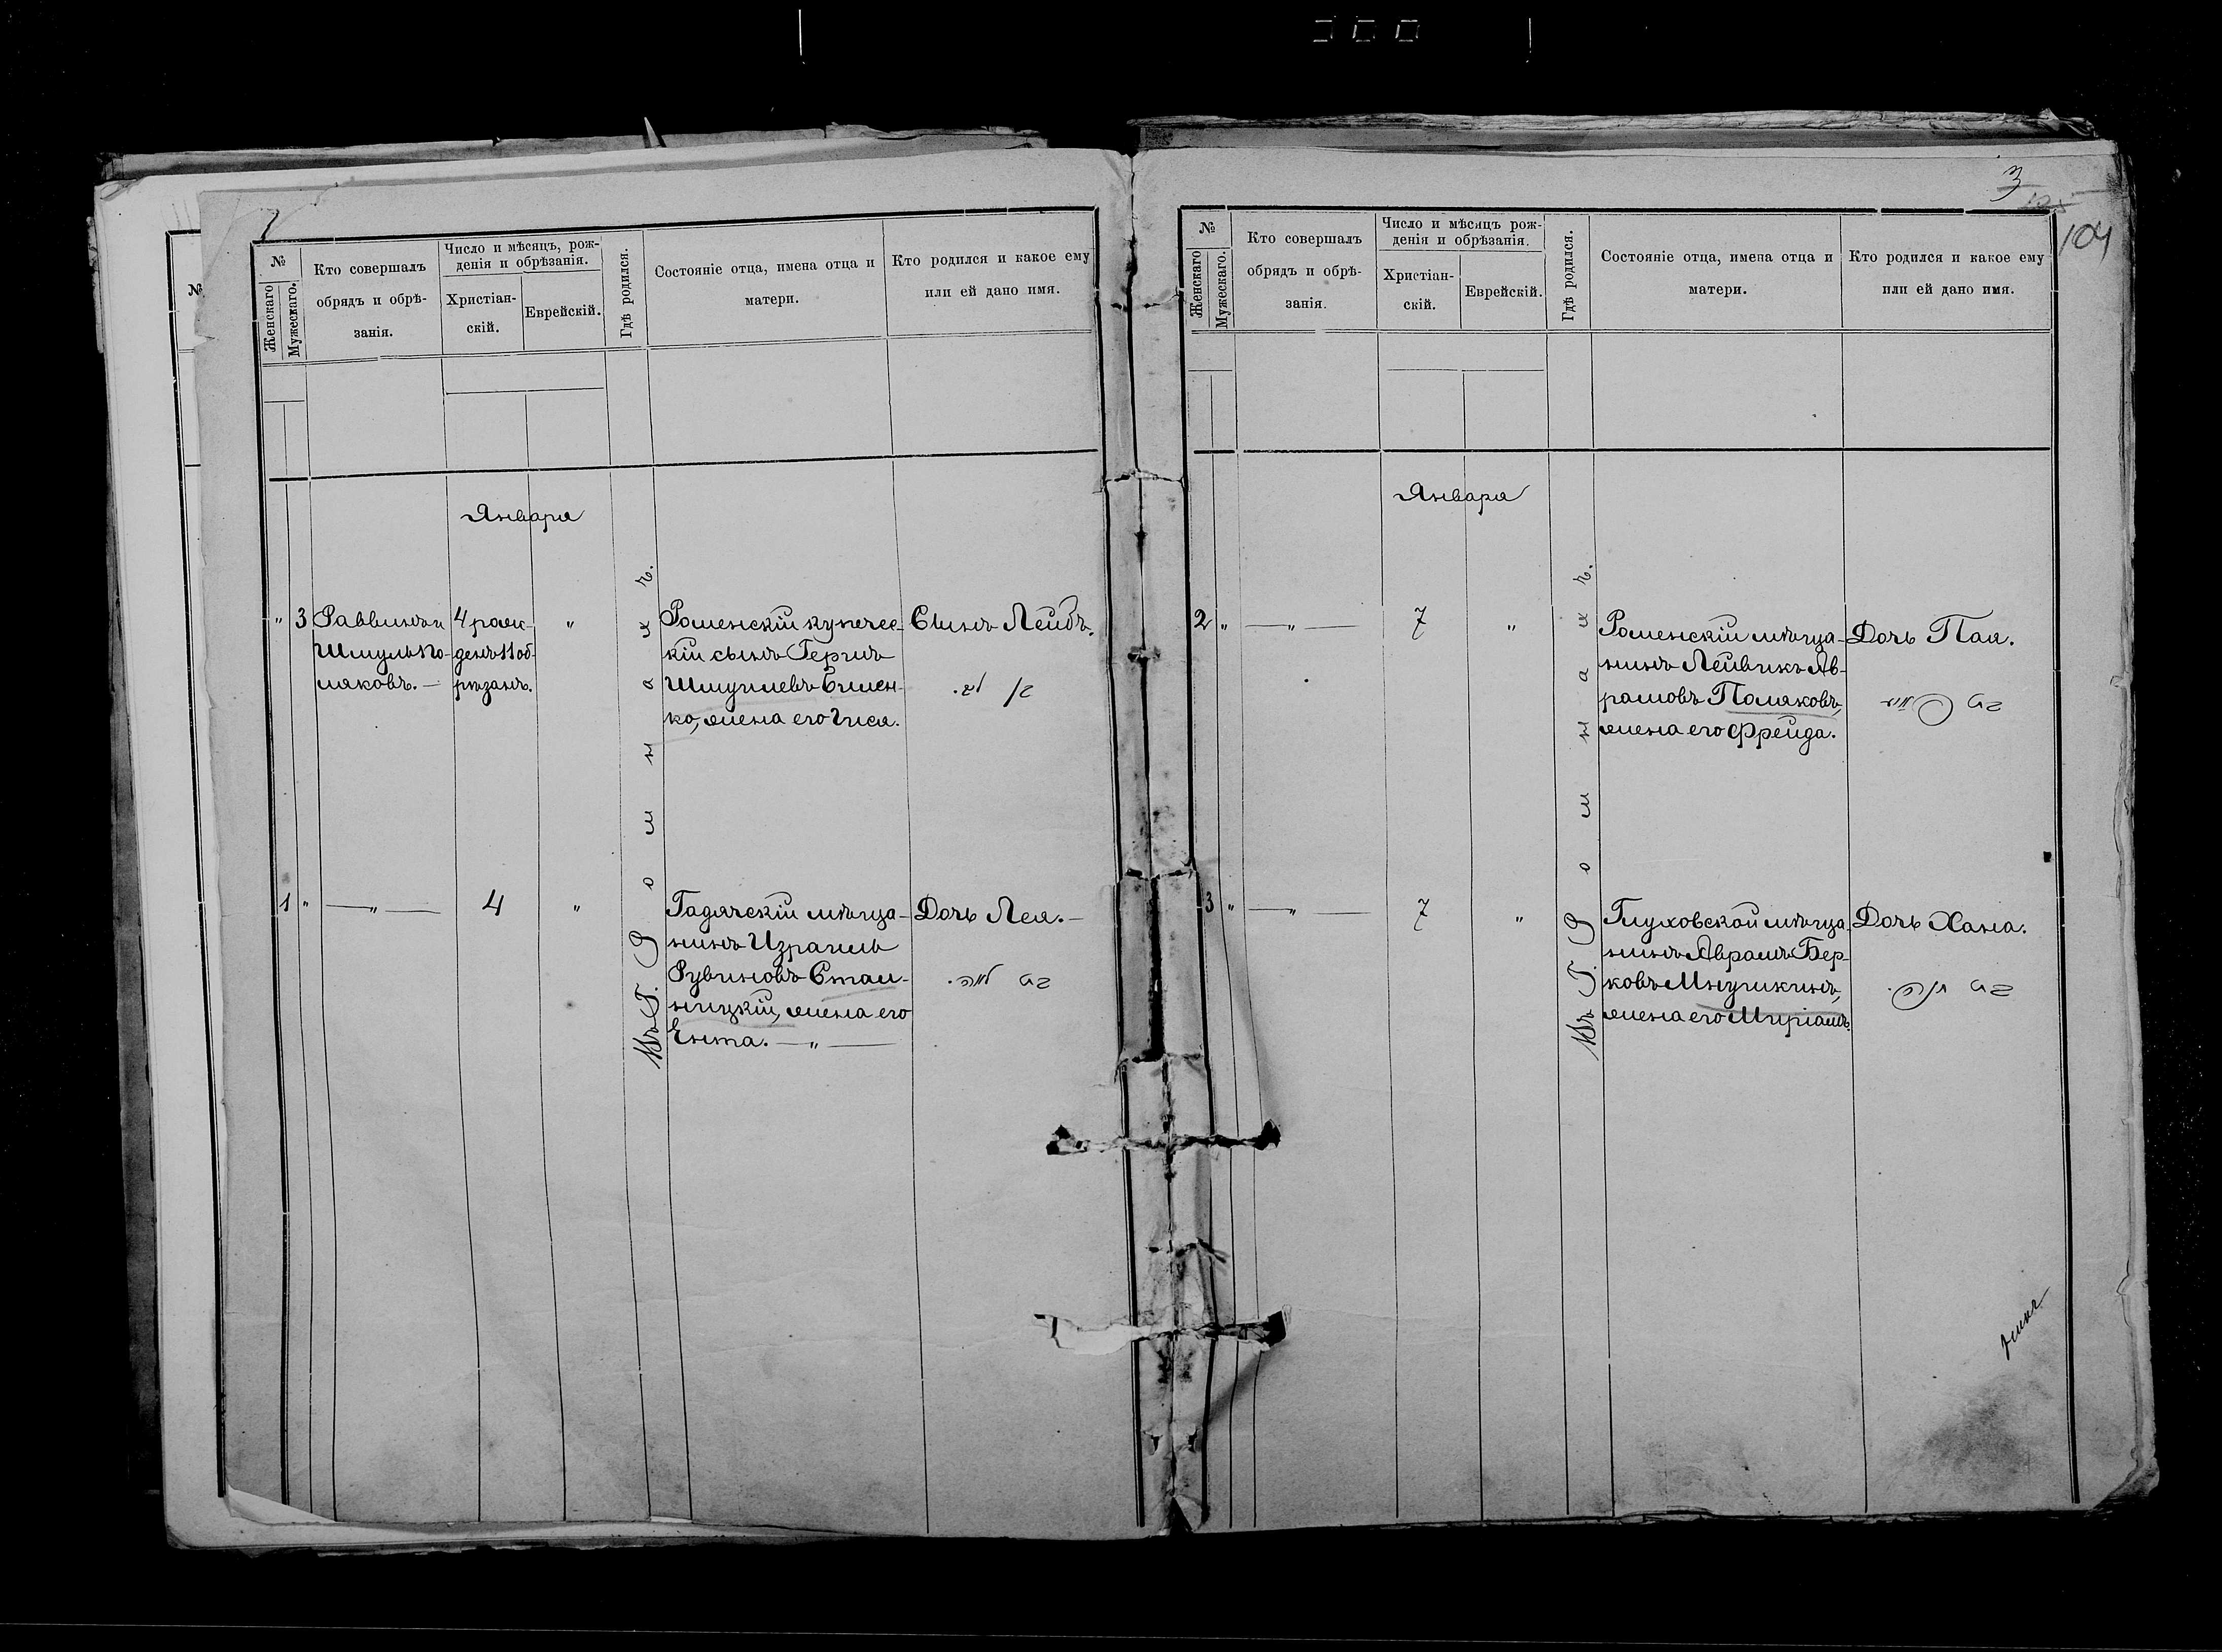 №
Женскаго
Мужескаго.
Кто совершалъ
обрядъ и обрѣ-
занія.
Число и мѣсяцъ, рож-
денія и обрѣзанія.
Христіан-
скій.
Еврейскій.
Гдѣ родился.
Состояніе отца, имена отца и
матери.
Кто родился и какое ему
или ей дано имя.
Января
" 3
Раввинъ и
Шмуль По-
ляковъ. —
4 рож-
денъ 11 об-
рѣзанъ.
"
Въ Г. Ромнахъ.
Роменскій купечес-
кій сынъ Гершъ
Шмуилевъ
ко, жена его
Сынъ Лейбъ.
1 "
— " —
4
"
Гадячскій мѣща-
нинъ Израиль
Рувиновъ Стан-
ницкій, жена его
Ента. — " —
Дочь Лея. —
בת לאה.
3
104
№
Женскаго
Мужескаго.
Кто совершалъ
обрядъ и обрѣ-
занія.
Число и мѣсяцъ рож-
денія и обрѣзанія.
Христіан-
скій.
Еврейскій.
Гдѣ родился.
Состояніе отца, имена отца и
матери.
Кто родился и какое ему
или ей дано имя.
Января
2 "
— " —
7
"
Въ Г. Ромнахъ.
Роменскій мѣща-
нинъ Лейвикъ Ав-
рамовъ Поляковъ,
жена его Фрейда.
Дочь Пая.
בת
3 "
— " —
7
"
Глуховской мѣща-
нинъ Аврамъ Бер-
ковъ Мнушкинъ,
жена его Миріамъ.
Дочь Хана.
בת חנה.